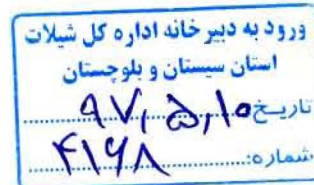 ورود به دبیرخانه اداره کل شیلات
استان سیستان و بلوچستان
تاریخ ۹۷,۵,۱۰
شماره: ۴۱۶۸